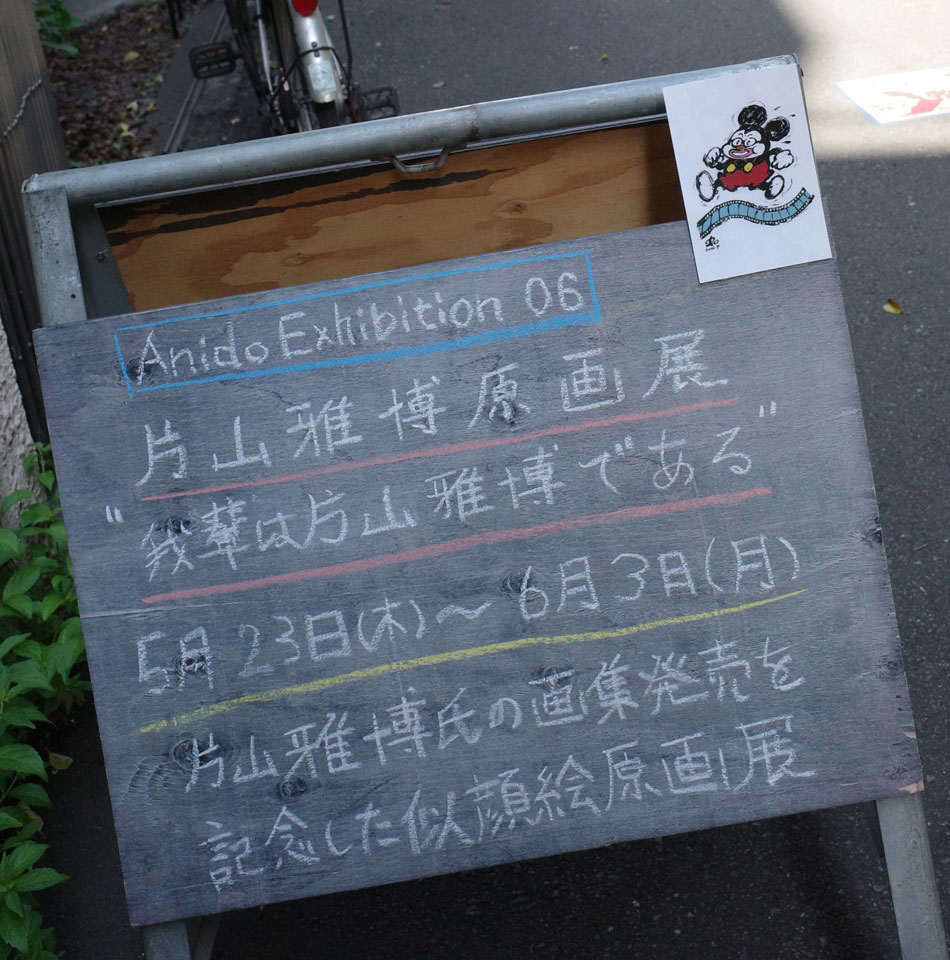 Anido Exhibition 06
片山雅博原画展
"我輩は片山雅博である"
5月23日(木)～6月3日(月)
片山雅博氏の画集発売を
記念した似顔絵原画展